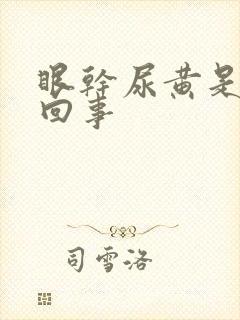 眼干尿黄是
回事
司雪洛